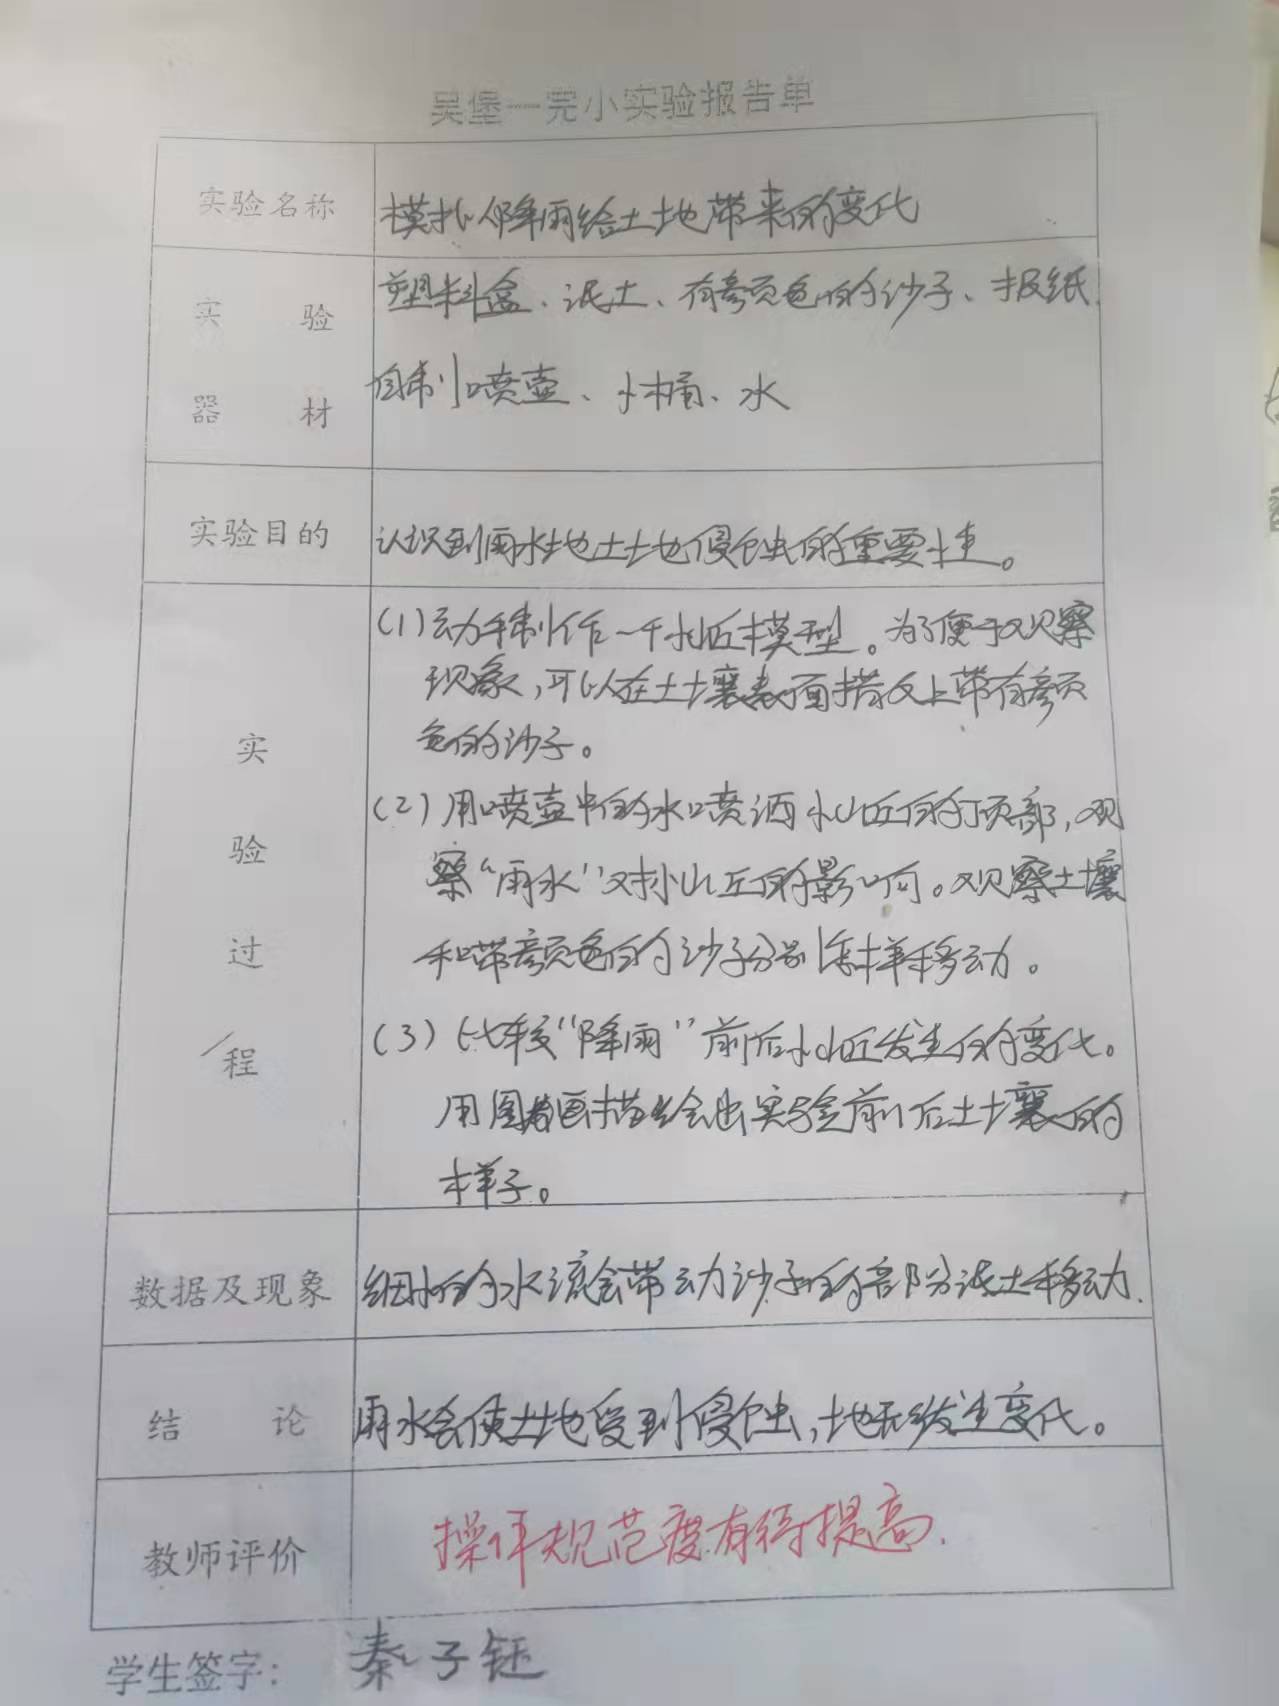 吴堡一完小实验报告单
实验名称
模拟降雨给土地带来的变化
实验
器材
塑料盒、泥土、有颜色的沙子、报纸、
自制喷壶、水桶、水
实验目的
认识到雨水地土地侵蚀的重要性。
实验过程
(1)动手制作一个小山丘模型。为了便于观察
现象,可以在土壤表面撒上带有颜
色的沙子。
(2)用喷壶中的水喷洒小山丘的顶部,观
察“雨水”对小山丘的影响。观察土壤
和带颜色的沙子分别怎样移动。
(3)比较“降雨”前后小山丘发生的变化。
用图画描绘出实验前后土壤的
样子。
数据及现象
细小的水流会带动沙子的部分泥土移动.
结论
雨水会使土地受到侵蚀,地形发生变化。
教师评价
操作规范度有待提高.
学生签字: 秦子钰